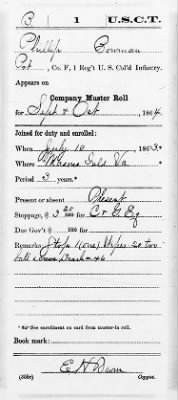 B | 1 | U.S.C.T.
Phillip Bowman
Pvt, Co. F, 1 Reg't U. S. Col'd Infantry.
Appears on
Company Muster Roll
for Sept & Oct, 1864.
Joined for duty and enrolled:
When July 10, 1863.*
Where Va
Period 3 years.*
Present or absent Present
Stoppage, $ 3 25/100 for C & G Eq
Due Gov't $ /100 for
Remarks: Stop 1 (one)
Book mark:
* See enrollment on card from muster-in roll.
E H
(858c) Copyist.